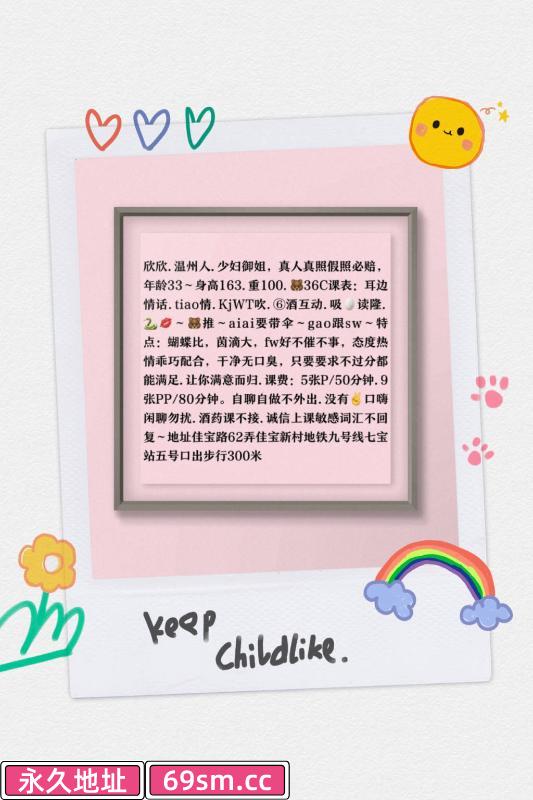 欣欣.温州人.少妇御姐，真人真照假照必赔，
年龄33～身高163.重100.🐻36C课表：耳边
情话.tiao情.KjWT吹.⑥酒互动.吸🥚读隆.
🐍💋～🐻推～aiai要带伞～gao跟sw～特
点：蝴蝶比，茵滴大，fw好不催不事，态度热
情乖巧配合，干净无口臭，只要要求不过分都
能满足.让你满意而归.课费：5张P/50分钟.9
张PP/80分钟。自聊自做不外出.没有✌️口嗨
闲聊勿扰.酒药课不接.诚信上课敏感词汇不回
复～地址佳宝路62弄佳宝新村地铁九号线七宝
站五号口出步行300米
keep
childlike.
永久地址 69sm.cc